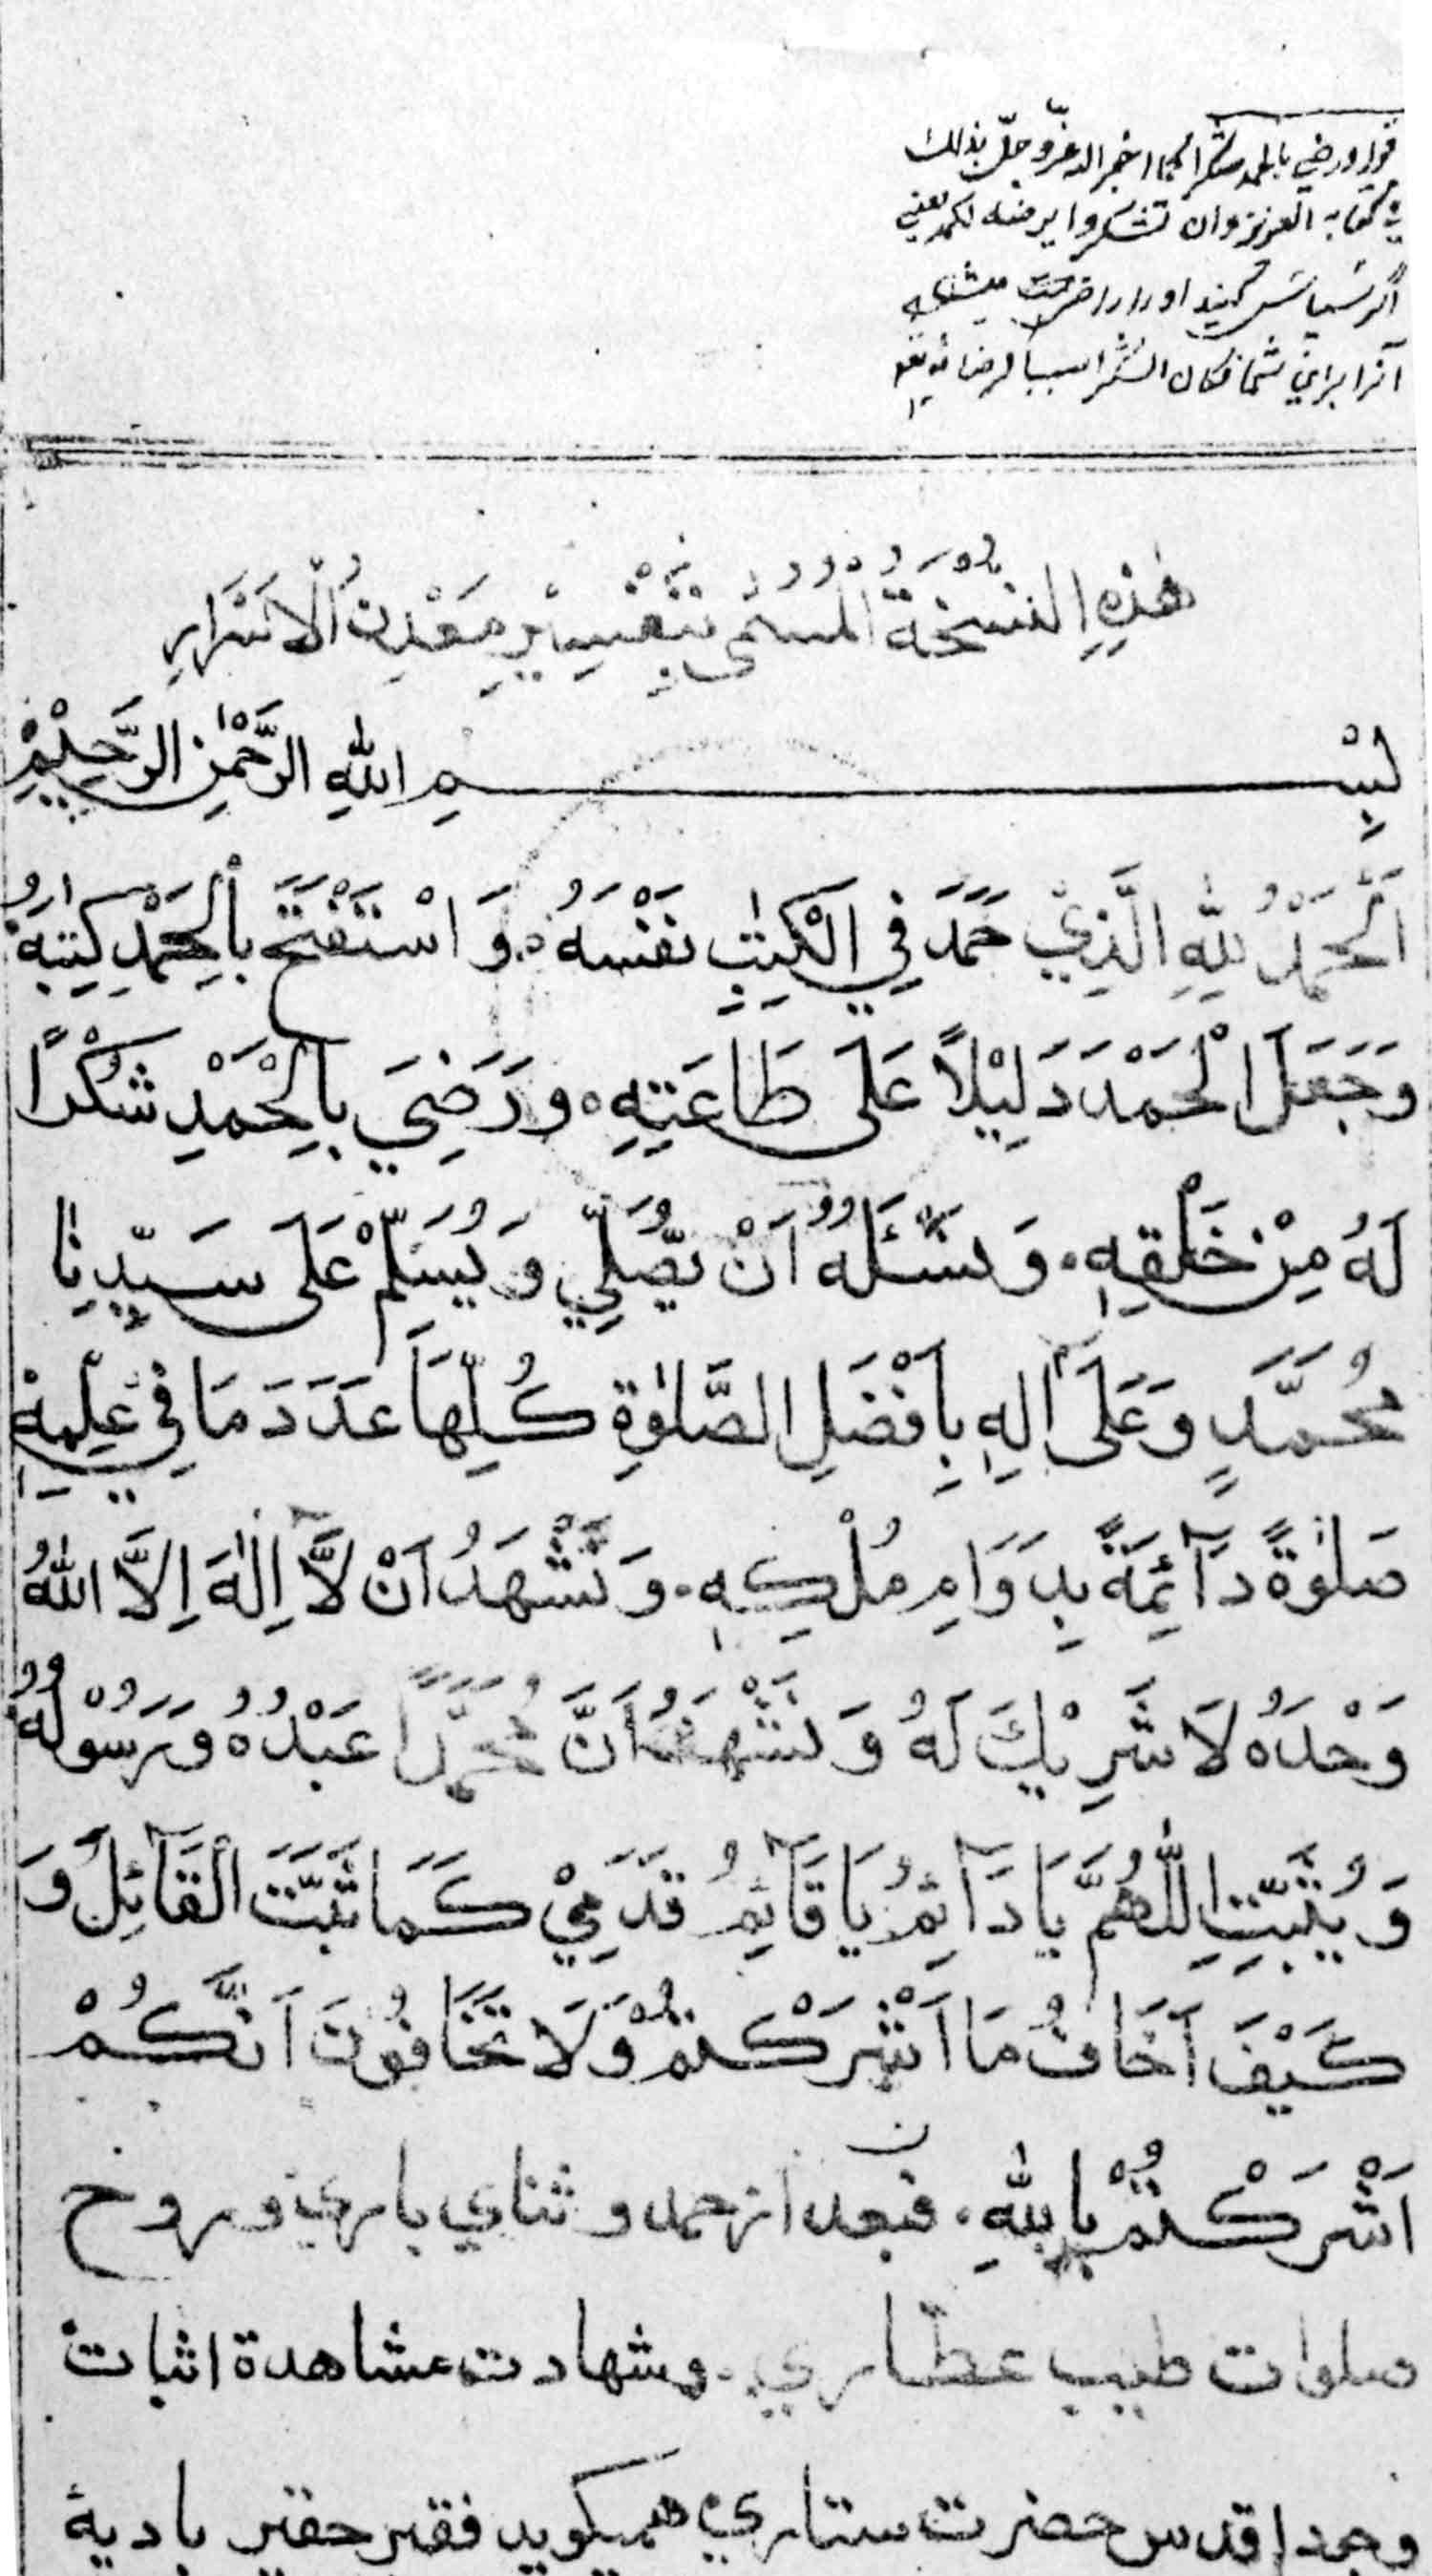 قوله ورضي بالحمد شكرا كما اخبر الله عزّ وجلّ بذلك
في كتابه العزيز وان تشكروا يرضه لكم يعني
اگر سپاس کنید او را
آنرا برای شما فكان الشكر سببا لرضائه
هٰذِهِ النُّسْخَةُ الْمُسَمّٰى بِتَفْسِيْرِ مَعْدِنُ الْاَسْرَارِ
بِسْمِ اللّٰهِ الرَّحْمٰنِ الرَّحِيْمِ
اَلْحَمْدُ لِلّٰهِ الَّذِيْ حَمَّدَ فِي الْكِتٰبِ نَفْسَهُ وَاسْتَفْتَحَ بِالْحَمْدِ كِتٰبَهُ
وَجَعَلَ الْحَمْدَ دَلِيْلًا عَلَى طَاعَتِهِ وَرَضِيَ بِالْحَمْدِ شُكْرًا
لَهُ مِنْ خَلْقِهٖ وَنَسْئَلُهُ اَنْ يُّصَلِّيَ وَيُسَلِّمَ عَلَى سَيِّدِنَا
مُحَمَّدٍ وَعَلَى اٰلِهٖ بِاَفْضَلِ الصَّلٰوةِ كُلِّهَا عَدَدَ مَا فِي عِلْمِهٖ
صَلٰوةً دَآئِمَةً بِدَوَامِ مُلْكِهٖ وَنَشْهَدُ اَنْ لَّا اِلٰهَ اِلَّا اللّٰهُ
وَحْدَهُ لَا شَرِيْكَ لَهُ وَنَشْهَدُ اَنَّ مُحَمَّدًا عَبْدُهُ وَرَسُوْلُهُ
وَيُثَبِّتِ اللّٰهُمَّ يَا دَآئِمُ يَا قَآئِمُ قَدَمِيْ كَمَا ثَبَّتَّ الْقَآئِلَ وَ
كَيْفَ اَخَافُ مَا اَشْرَكْتُمْ وَلَا تَخَافُوْنَ اَنَّكُمْ
اَشْرَكْتُمْ بِاللّٰهِ فبعد از حمد و ثناي باري و روخ
صلوات طيب عطاري وشهادت مشاهدة اثبات
وحد اقدس حضرت ستاري هميكويد فقير حقير باديهٔ